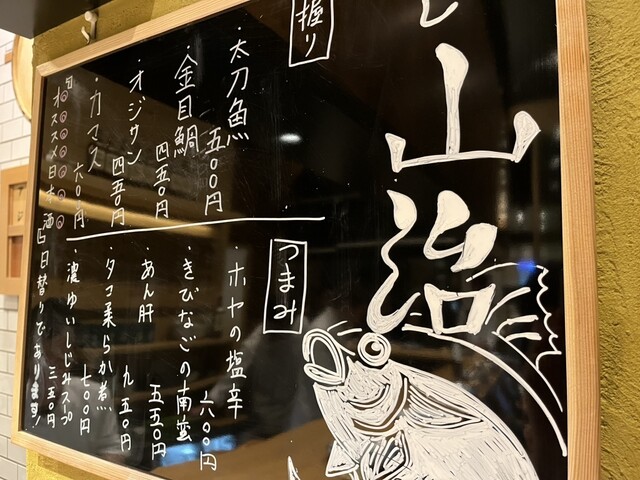 山治
握り
・太刀魚 五〇〇円
・金目鯛 四五〇円
・オジサン 四五〇円
・カマス 六〇〇円
つまみ
・ホヤの塩辛 六〇〇円
・きびなごの南蛮 五五〇円
・あん肝 九五〇円
・タコ柔らか煮 七〇〇円
濃ゆいしじみスープ 三五〇円
オススメ日本酒 日替りであります!